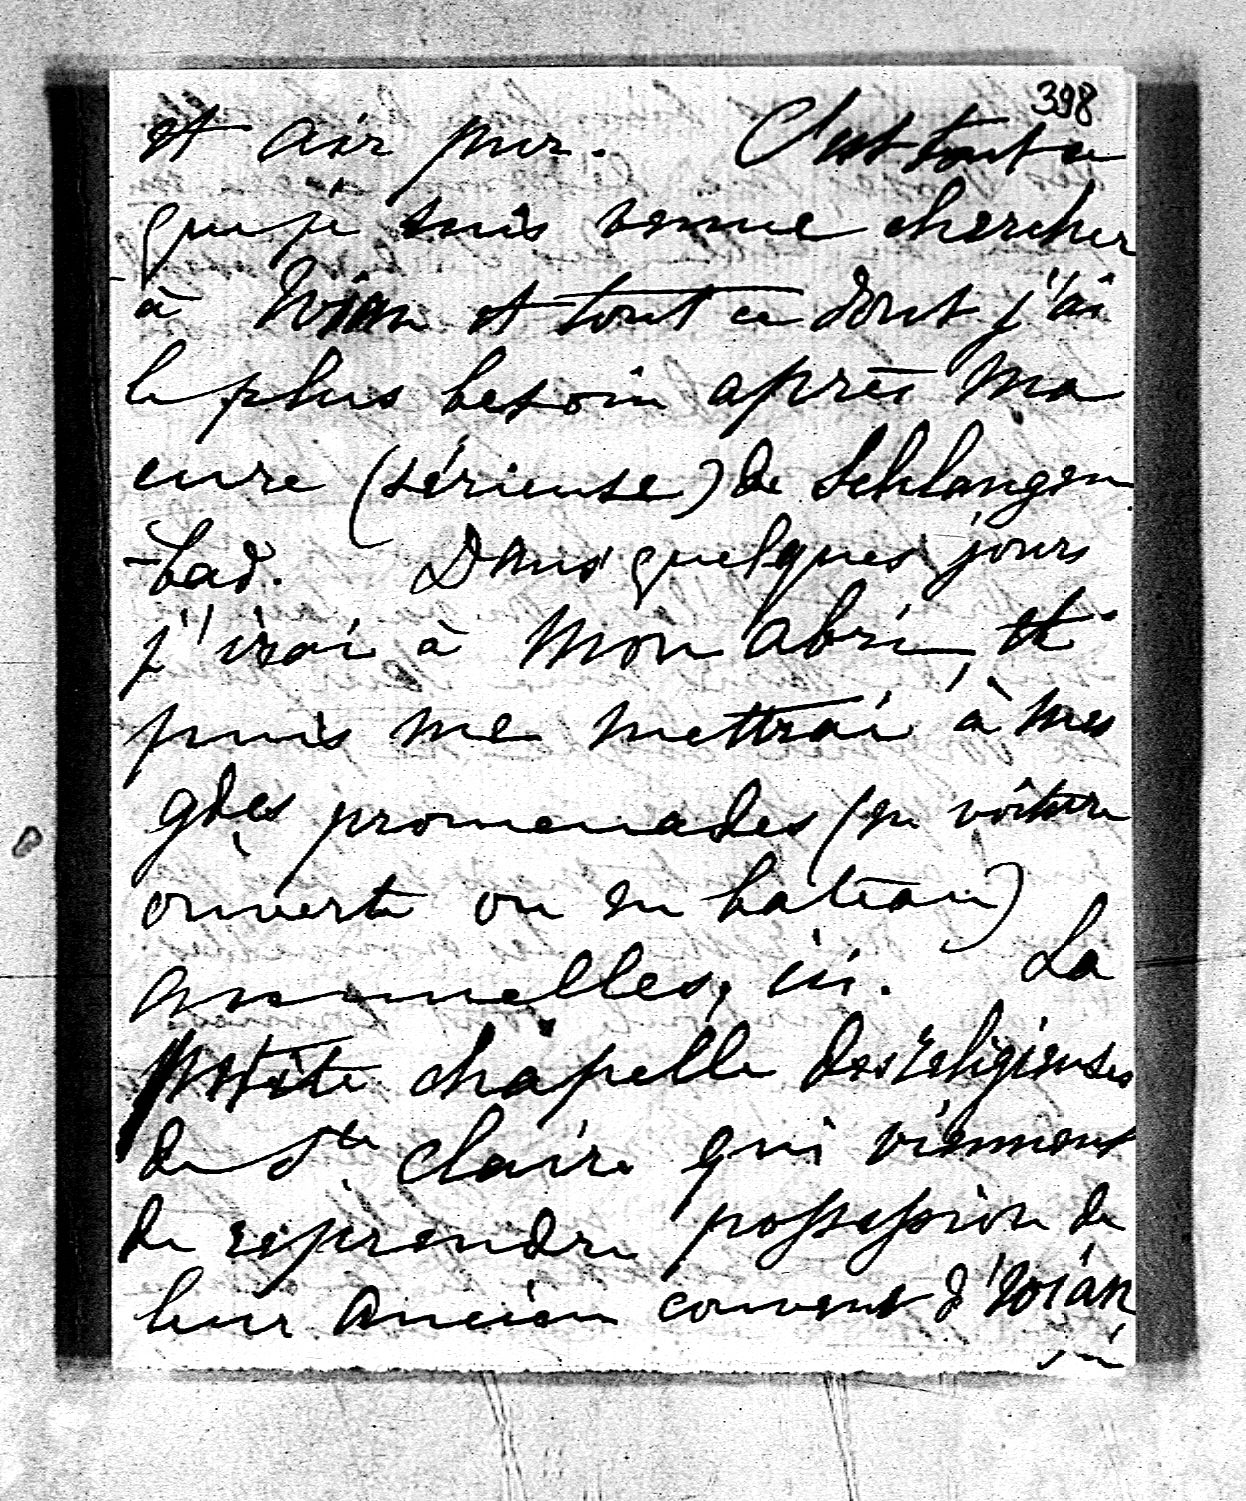 398
et air pur. C'est tout ce
que je suis venue chercher
à Evian et tout ce dont j'ai
le plus besoin après ma
cure (sérieuse) de Schlangen
-bad. Dans quelques jours
j'irai à mon abri, et
puis me mettrai à mes
gdes promenades (en voiture
ouverte ou en bateau)
annuelles, ici. La
petite chapelle des religieuses
de Ste Claire qui viennent
de reprendre possession de
leur ancien couvent d'Evian